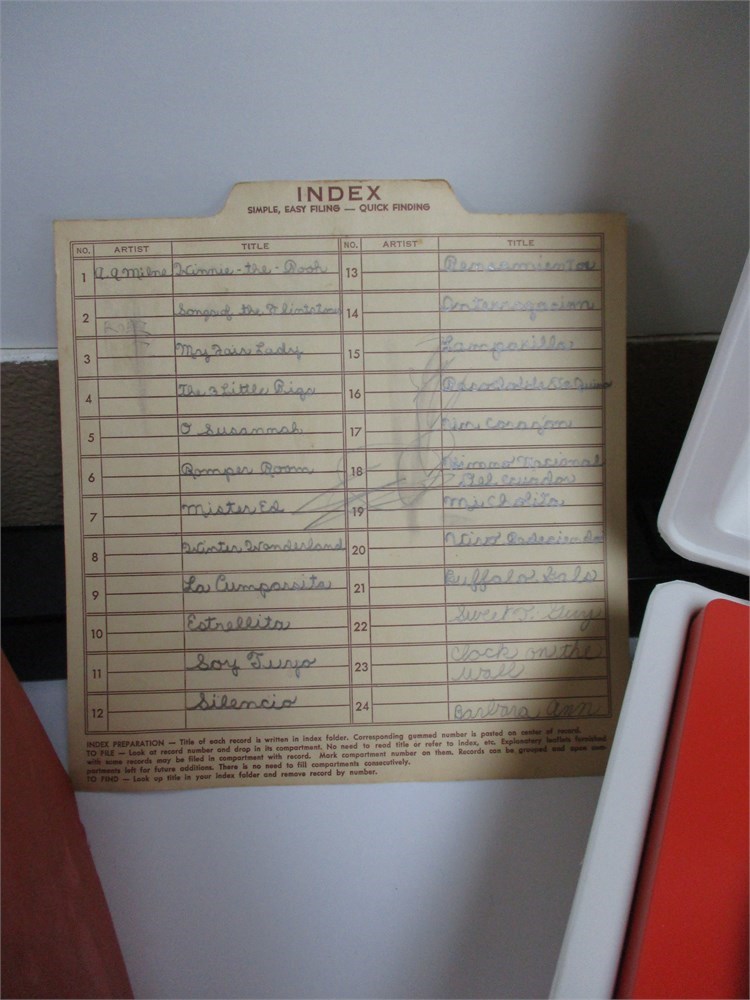 INDEX
SIMPLE, EASY FILING — QUICK FINDING
NO. ARTIST TITLE NO. ARTIST TITLE
1 A.A Milne Winnie-the-Pooh
2 Songs of the Flintstone
3 My Fair Lady
4 The 3 Little Pigs
5 O Susannah
6 Romper Room
7 Mister Ed
8 Winter Wonderland
9 La Cumparsita
10 Estrellita
11 Soy Tuyo
12 Silencio
13
14
15 Lamparilla
16
17 Corazon
18 Himno Nacional
Del Ecuador
19 Mi Cholita
20
21 Buffalo Gals
22 Guy
23 Clock on the
Wall
24 Barbara Ann
INDEX PREPARATION — Title of each record is written in index folder. Corresponding gummed number is pasted on center of record.
TO FILE — Look at record number and drop in its compartment. No need to read title or refer to index, etc. Explanatory leaflets furnished
with some records may be filed in compartment with record. Mark compartment number on them. Records can be grouped and open com-
partments left for future additions. There is no need to fill compartments consecutively.
TO FIND — Look up title in your index folder and remove record by number.